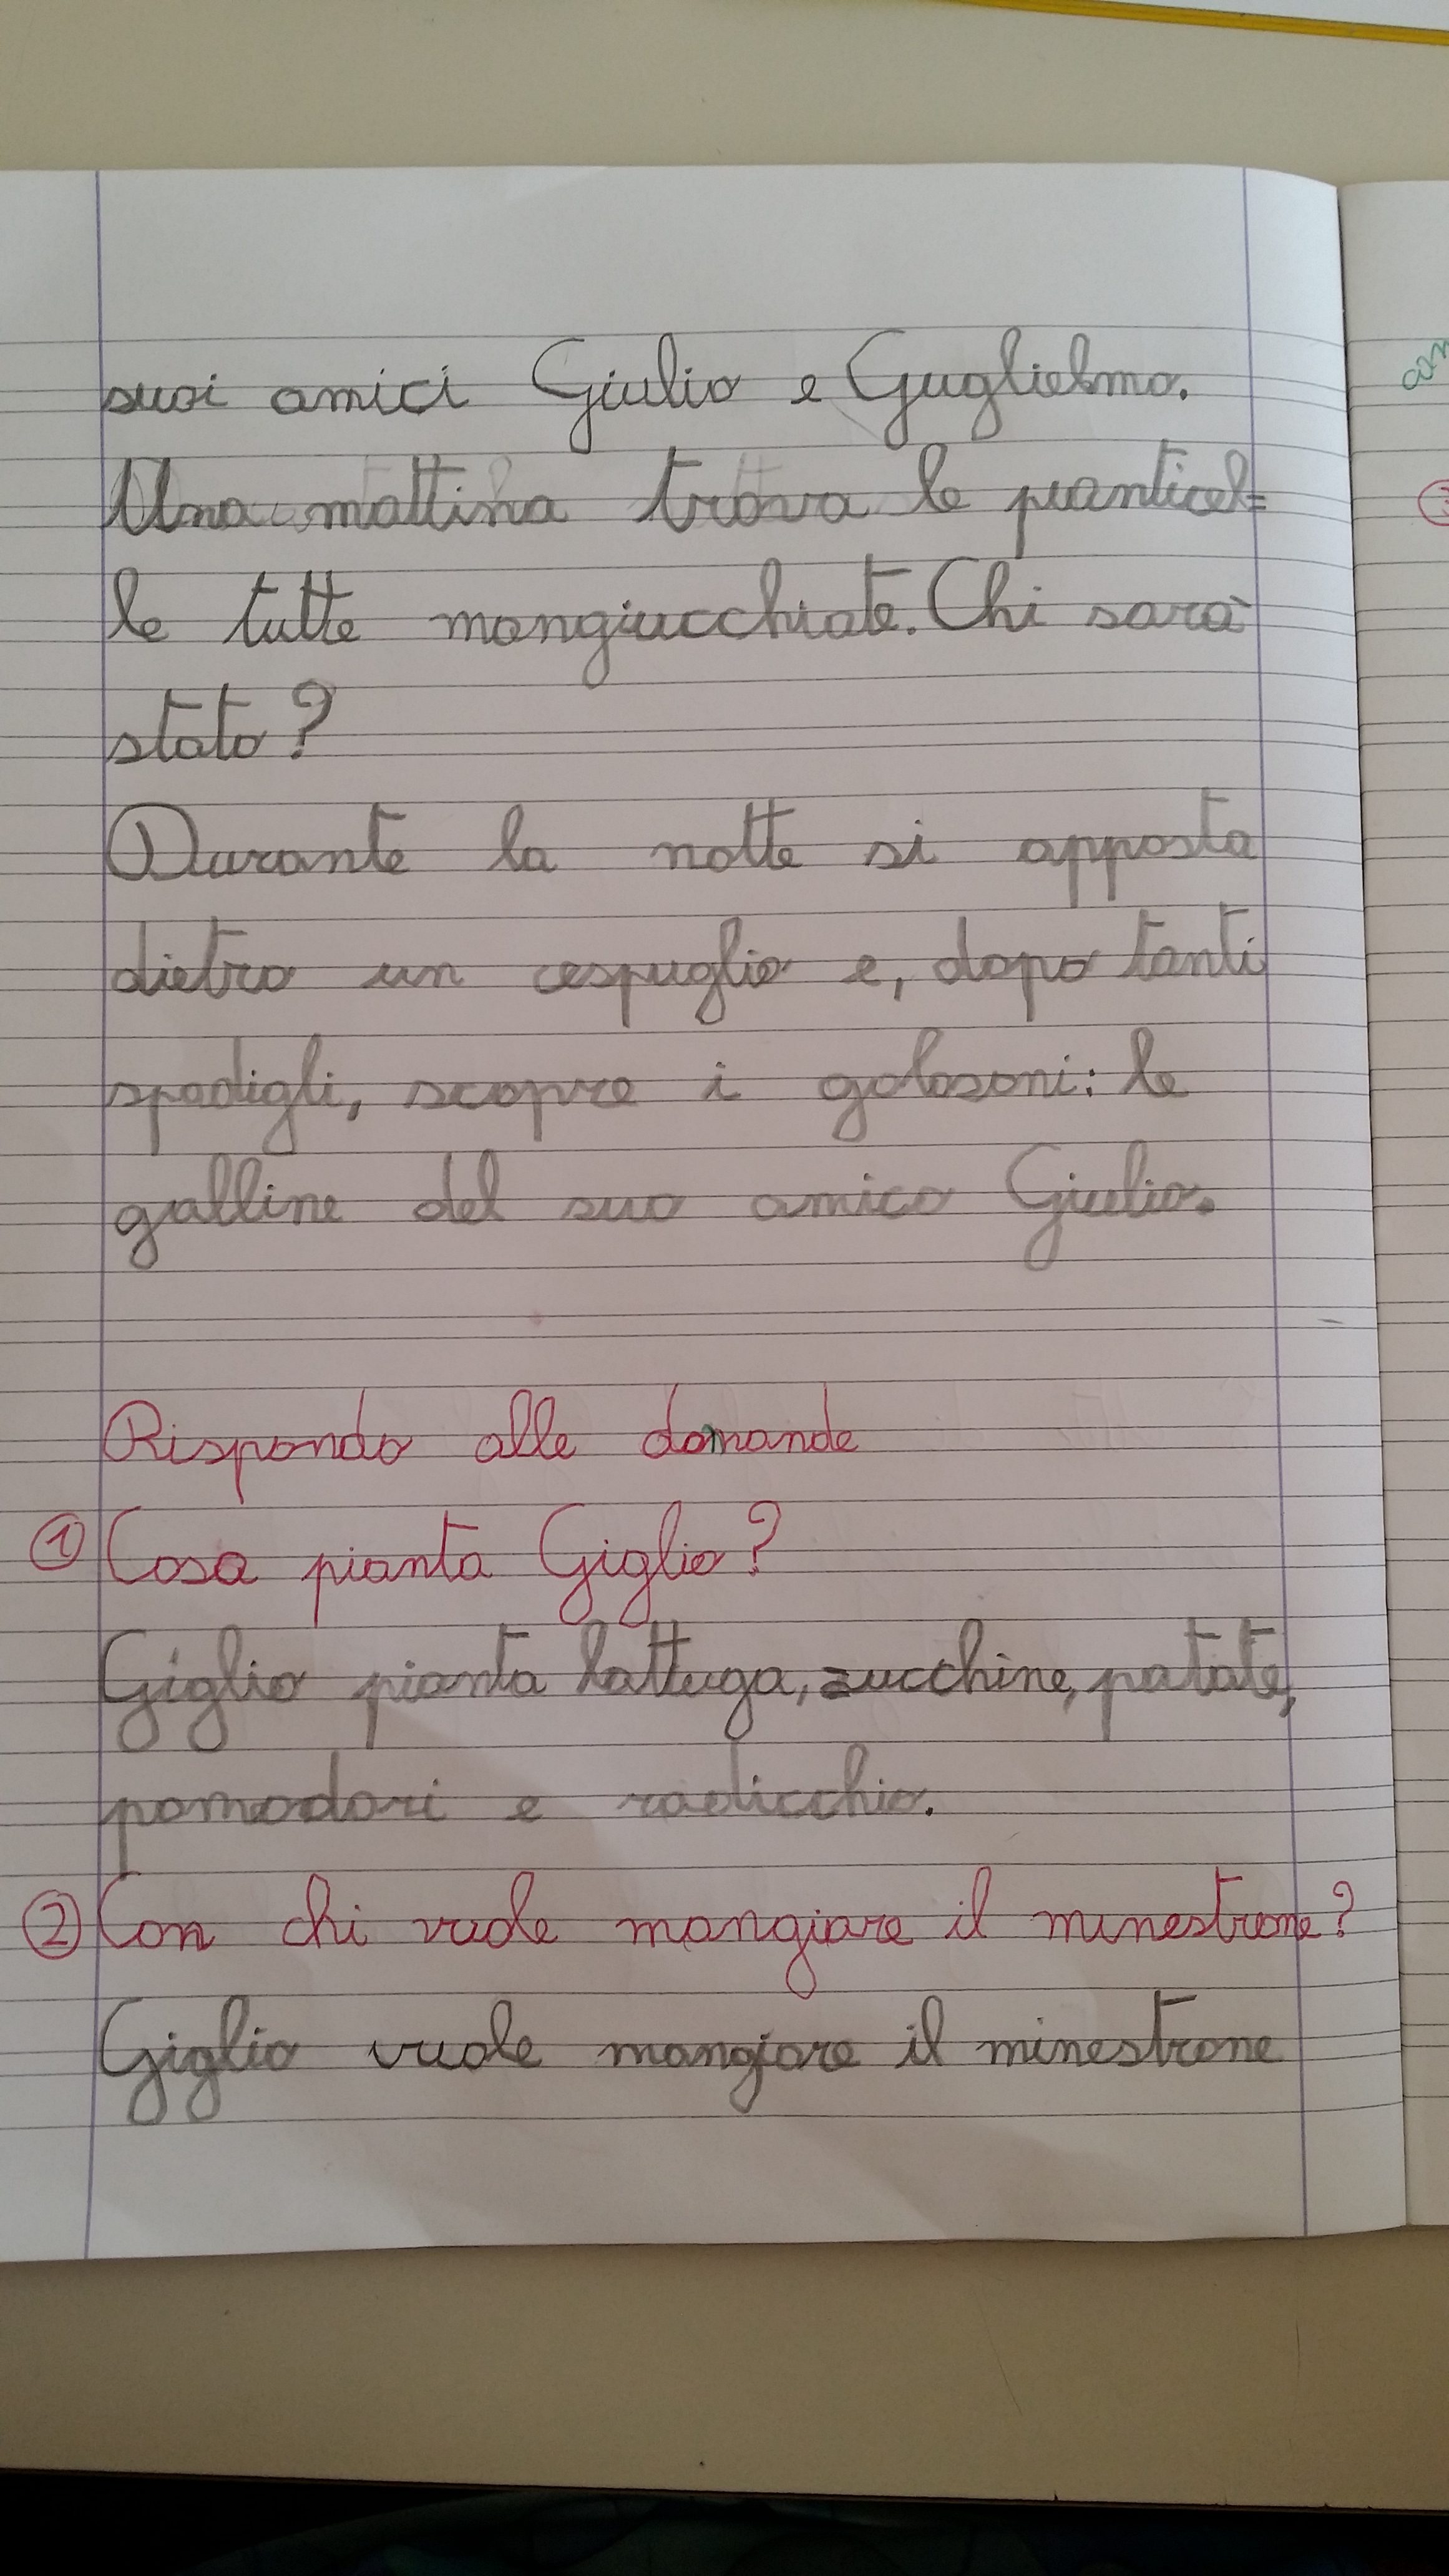 suoi amici Giulio e Guglielmo.
Una mattina trova le pianticel=
le tutte mangiucchiate. Chi sarà
stato?
Durante la notte si apposta
dietro un cespuglio e, dopo tanti
spadigli, scopre i golosoni: le
galline del suo amico Giulio.
Rispondo alle domande
① Cosa pianta Giglio?
Giglio pianta lattuga, zucchine, patate,
pomodori e radicchio.
② Con chi vuole mangiare il minestrone?
Giglio vuole mangiare il minestrone